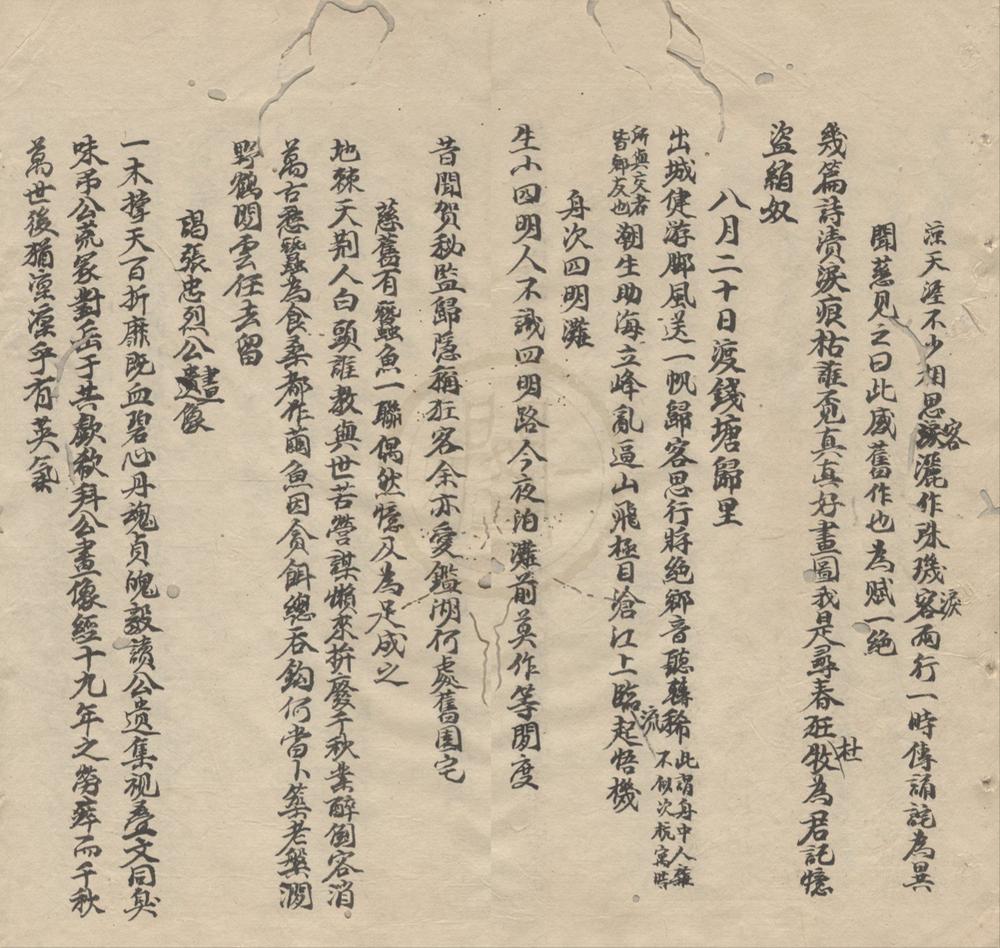 涼天涯不少相思淚客灑作珠璣容淚兩行一時傳誦詫為異
聞慈見之曰此感舊作也為賦一絕
幾篇詩漬淚痕枯誰覓真真好畫圖我是尋春狂杜牧為君記憶
盜綃奴
八月二十日渡錢塘歸里
出城健游腳風送一帆歸客思行將絕鄉音聽轉稀此謂舟中人雖不似次杭寓時
所與交者皆鄉友也潮生助海立峰亂逼山飛極目滄江上臨流起悟機
舟次四明灘
生小四明人不識四明路今夜泊灘前莫作等閒度
昔聞賀秘監歸隱稱狂客余亦愛鑑湖何處舊園宅
慈舊有蠶魚一聯偶然憶及為足成之
地棘天荊人白頭誰教與世苦營謀懶來拚廢千秋業醉倒容消
萬古愁蠶為食桑都作繭魚因貪餌總吞鈎何當卜築老槃澗
野鶴閒雲任去留
謁張忠烈公遺畫像
一木撐天百折靡既血碧心丹魂貞魄毅讀公遺集視疊文同臭
味弔公荒冢對岳于共歔欷拜公畫像經十九年之勞瘁而千秋
萬世後猶凜凜乎有英氣